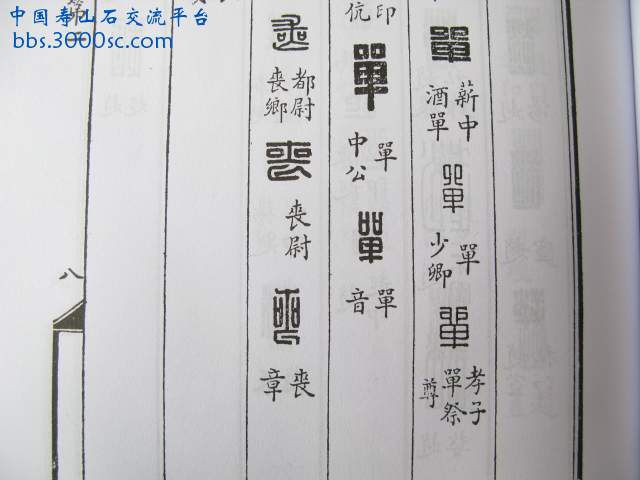 中国寿山石交流平台
bbs.3000sc.com
單
薪中
酒單
單
單
少卿
單
孝子
單祭
尊
印
伉
單
單
中公
單
單
音
都尉
喪鄉
喪
喪尉
喪
喪
章
八